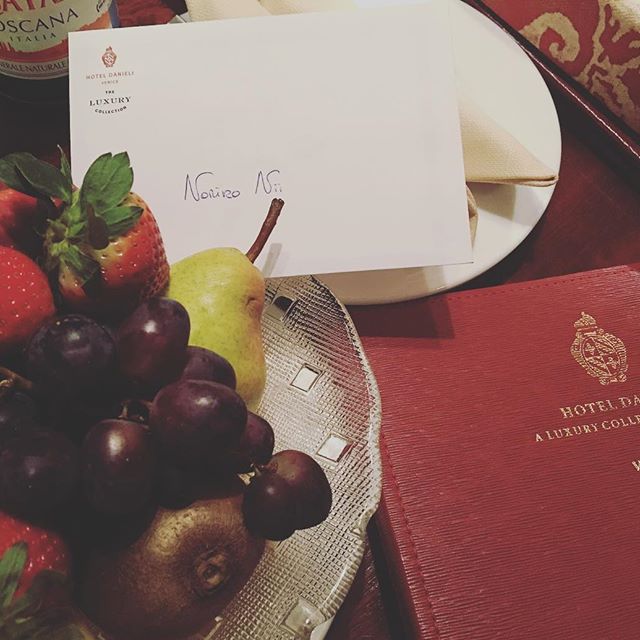 TOSCANA
ITALIA
HOTEL DANIELI
VENICE
THE
LUXURY
COLLECTION
Noriko Nii
HOTEL DA
A LUXURY COLLE